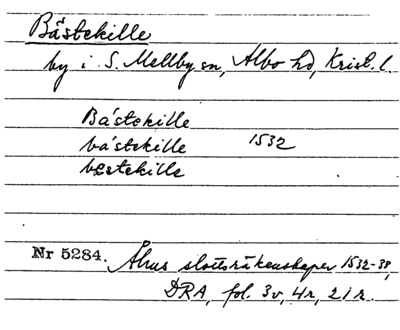 Bästekille
by i S. Mellby sn, Albo hd, Krist. l.
Bástekille
bástekille 1532
bestekille
Nr 5284. Åhus slottsräkenskaper 1532-38,
DRA, fol. 3v, 4r, 21r.